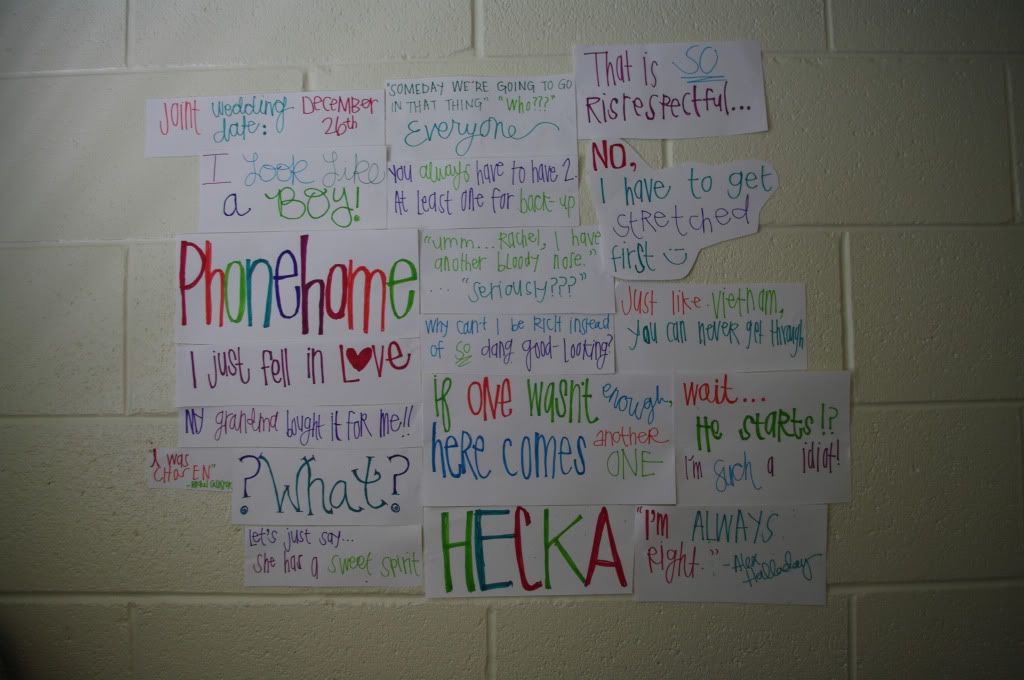 Joint wedding December
date: 26th
I Look Like
a BOY!
Phonehome
I just fell in Love
My grandma bought it for me!!
I was
CHOSEN"
?What?
Let's just say...
she has a sweet spirit
"SOMEDAY WE'RE GOING TO GO
IN THAT THING" "Who???"
Everyone
You always have to have 2.
At least one for back-up
"umm... Rachel, I have
another bloody nose."
... "Seriously???"
Why can't I be RICH instead
of so dang good-looking?
If ONE wasn't enough,
here comes another
ONE
HECKA
That is SO
Risrespectful...
NO,
I have to get
stretched
first
Just like Vietnam,
you can never get through
wait...
He starts!?
I'm such a idiot!
"I'm ALWAYS
Right." -Alex
Halladay